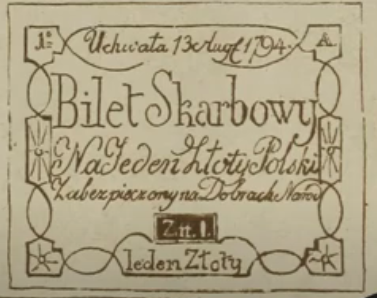 1º Uchwała 13 Aug. 1794. A
Bilet Skarbowy
Na Jeden Złoty Polski
Zabezpieczony na Dobrach Narod
Zł. 1.
Ieden Złoty